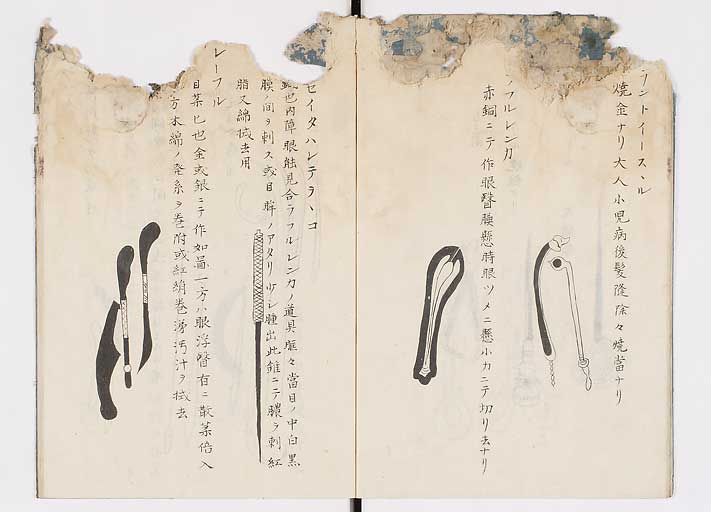 ラントイースヽル
焼金ナリ大人小児病後髪隆除々焼當ナリ
フルレンカ
赤銅ニテ作眼翳腰懸時眼ツメニ懸小カニテ切リ去ナリ
セイタハレテラヽコ
也内障眼能見合フルレンカノ道具眶々當目ノ中白黒
腰ノ間ヲ刺ス或目眸ノアタリ少シ腫出此錐ニテ膿ヲ刺紅
脂又綿拭去用
レーフル
目薬匕也金或銀ニテ作如畐一方ハ眼浮翳有ニ散薬倍入
方木綿ノ発糸ヲ巻附或紅絹巻涕汚汁ヲ拭去